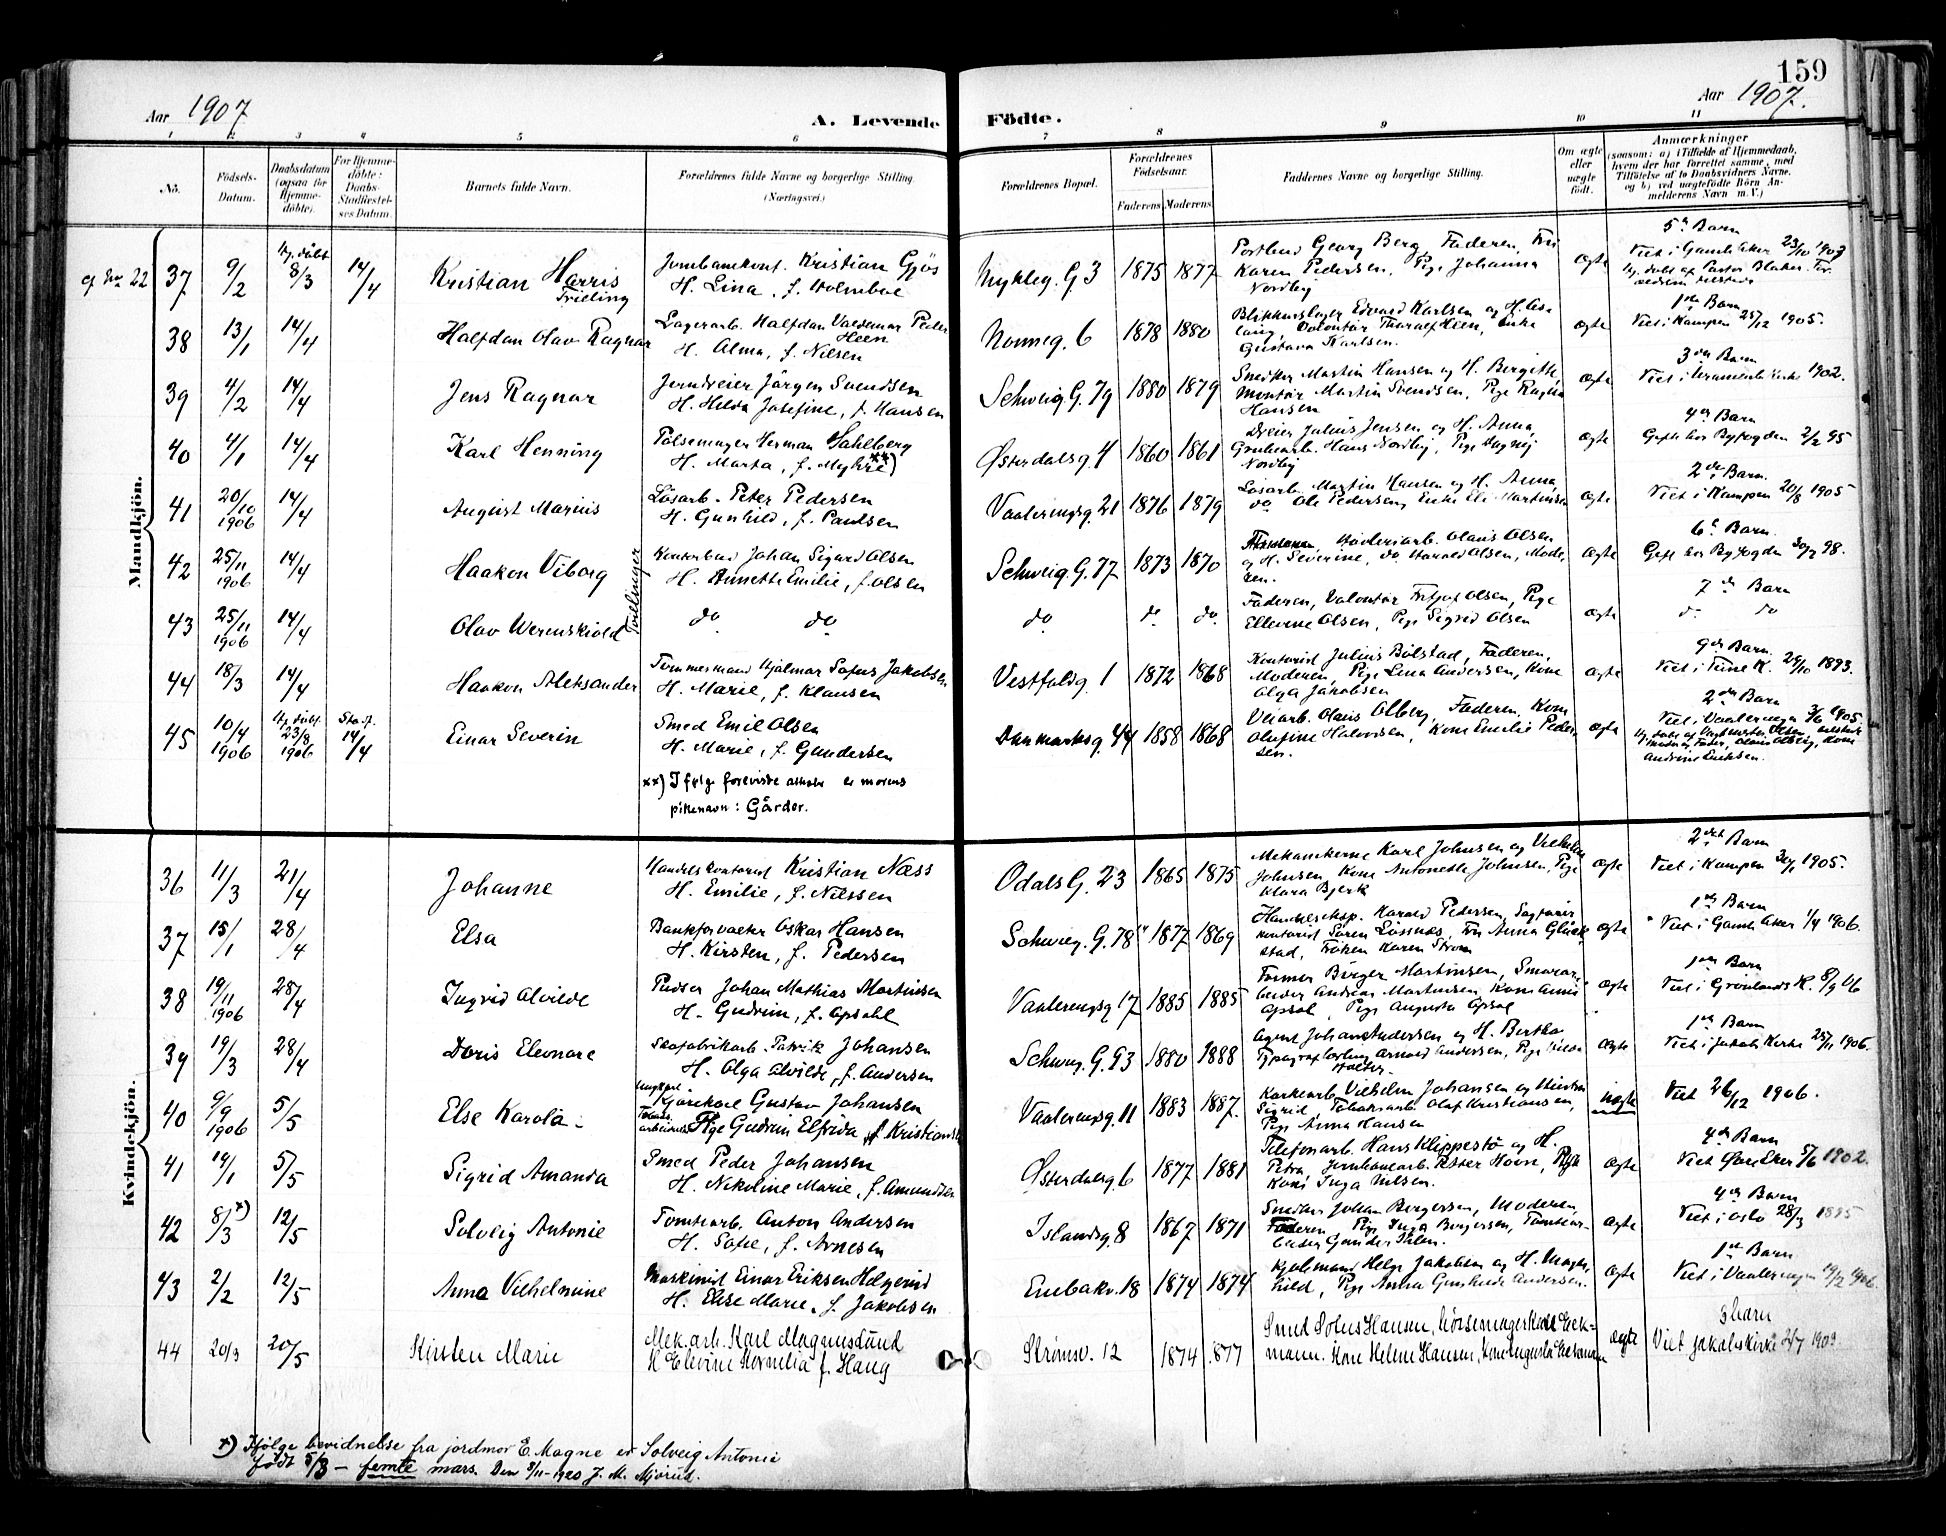 159
Aar 1907
A. Levende Fødte.
Aar 1907.
1 2 3 4 5 6 7 8 9 10 11
No.
Fødsels-Datum.
Daabsdatum (ogsaa for Hjemmedøbte).
For Hjemmedøbte: Daabs-Stadfæstelses Datum.
Barnets fulde Navn.
Forældrenes fulde Navne og borgerlige Stilling.
(Næringsvei.)
Forældrenes Bopæl.
Forældrenes Fødselsaar.
Faderens Moderens
Faddernes Navne og borgerlige Stilling.
Om ægte eller uægte født.
Anmærkninger
(saasom: a) i Tilfælde af Hjemmedaab, hvem der har forrettet samme, med Tilføielse af to Daabsvidners Navne, og b) ved uægtefødte Børn Anmelderens Navn m. V.)
Mandkjøn.
cf No 22 37 9/2 Hj. døbt 8/3 14/4 Kristian Harris Frieling
Kristian Gjøs
H. Lina, f. Holmboe
Nykleg. G. 3 1875 1877
Georg Berg, Faderen, Fru
Karen Pedersen, Pige Johanna
Nordby
ægte
5te Barn
Viet i Gamle Aker 23/10
38 13/1 14/4 Halfdan Olav Ragnar
Lagerarb. Halfdan Valdemar Peder
Heen
H. Alma, f. Nilsen
Nonneg. 6 1878 1880
Edvard Karlsen og H.
Gustava Karlsen.
ægte
1ste Barn
Viet i Kampen 25/12 1905.
39 4/2 14/4 Jens Ragnar
Jerndreier Jørgen Svendsen
H. Hilda Josefine, f. Hansen
Schweig. G. 79 1880 1879
Snedker Martin Hansen og H. Bergitte,
Montør Martin Svendsen, Pige Ragna
Hansen
ægte
3die Barn
1902.
40 4/1 14/4 Karl Henning
Pølsemager Herman Sahlberg
H. Marta, f. Myhre xx)
Østerdalsg. 4 1860 1861
Dreier Julius Jensen og H. Anna,
Grubearb. Hans Nordby, Pige Dagny
Nordby
ægte
4de Barn
Gift hos Byfogden 2/2 95
41 20/10 1906 14/4 August Marius
Løsarb. Peter Pedersen
H. Gunhild, f. Paulsen
Vaalerengsg. 21 1876 1879
Løsarb. Martin Hansen og H. Anna,
do Ole Pedersen, Enke Eli Martinsen
ægte
2det Barn.
Viet i Kampen 20/8 1905
42 25/11 1906 14/4 Haakon Viborg
Kontorbud Johan Sigurd Olsen
H. Annette Emilie, f. Olsen
Tvillinger
Schweig. G. 77 1873 1870
Olaus Olsen
og H. Severine, do Harald Olsen, Mode-
ren.
ægte
6te Barn
Gift hos Byfogden 30/7 98.
43 25/11 1906 14/4 Olav Werenskiold
do do
do do do
Faderen, Volontør Fritjof Olsen, Pige
Ellevine Olsen, Pige Sigrid Olsen
ægte
7de Barn
do do
44 18/3 14/4 Haakon Aleksander
Tømmermand Hjalmar Sofus Jakobsen
H. Marie, f. Klausen
Vestfoldg. 1 1872 1868
Kontorist Julius Bølstad, Faderen,
Moderen, Pige Lina Andersen, Kone
Olga Jakobsen
ægte
9de Barn.
Viet i Tune K. 29/10 1893.
45 10/4 1906 Hj. døbt 23/8 1906 Stadf. 14/4 Einar Severin
Smed Emil Olsen
H. Marie, f. Gundersen
Danmarksg. 44 1858 1868
Veiarb. Olaus Olberg, Faderen, Kone
Olufine Halvorsen, Kone Emilie Peder-
sen.
ægte
2det Barn
Viet i Vaalerengen 3/6 1905.
xx) Ifølge foreviste attester er morens
pikenavn: Gårder.
Kvindekjøn.
36 11/3 21/4 Johanne
Handelskontorist Kristian Næss
H. Emilie, f. Nilssen
Odals G. 23 1865 1875
Mekanikerne Karl Johnsen og Vilhelm
Johnsen, Kone Antonette Johnsen, Pige
Klara Bjerk
ægte
2det Barn
Viet i Kampen 30/1 1905.
37 15/1 28/4 Elsa
Bankforvalter Oskar Hansen
H. Kirsten, f. Pedersen
Schweig. G. 78 1877 1869
Handelsexp. Harald Pedersen, Sagfører-
kontorist Søren Løsnæs, Fru Anna Gluck-
stad, Frøken Karen Strom
ægte
1ste Barn
Viet i Gamle Aker 1/4 1906.
38 19/11 1906 28/4 Ingrid Alvilde
Pudser Johan Mathias Martinsen
H. Gudrun, f. Opsahl
Vaalerengsg 17 1885 1885
Former Birger Martinsen, Smørar-
beider Andreas Martinsen, Kone Annie
Opsal, Pige Augusta Opsal
ægte
1ste Barn
Viet i Grønlands K. 8/9 06
39 19/3 28/4 Doris Eleonore
Skofabrikarb. Patrik Johansen
H. Olga Alvilde, f. Andersen
Schweig. G. 93 1880 1888
Agent Johan Andersen og H. Bertha,
Typograflærling Arnold Andersen, Pige
ægte
1ste Barn
Viet i Jakobs Kirke 25/11 1906.
40 9/9 1906 5/5 Else Karola
Ungkarl Gørekarl Gustav Johansen
Tobaks-
arbeiderske Pige Gudrun Elfrida f. Kristiansen
Vaalerengsg. 11 1883 1887.
Korkearb. Vilhelm Johansen og Hustru
Sigrid, Tobaksarb. Olaf Kristiansen,
Pige Anna Hansen
uægte
Viet 26/12 1906.
41 14/1 5/5 Sigrid Amanda
Smed Peder Johansen
H. Nikoline Marie, f. Amundsen
Østerdalsg. 6 1877 1881
Telefonarb. Hans Klippestø og H.
Petra, Jernbanearb. Petter Hovn,
Kone Inga Nilsen.
ægte
4de Barn
Viet Øvre Eker 5/6 1902.
42 8/3 x) 12/5 Solveig Antonie
Tomtearb. Anton Andersen
H. Sofie, f. Arnesen
Islandsg. 8 1867 1871
Snedker Johan Borgersen, Moderen,
Faderen, Pige Inga Borgersen, Tomtear-
beider Gunder Iversen.
ægte
4de Barn
Viet i Oslo 28/3 1895
43 2/2 12/5 Anna Vilhelmine
Maskinist Einar Eriksen Helgerud
H. Else Marie, f. Jakobsen
Enebakv. 18 1874 1874
Kjøbmand Helge Jakobsen og H. Magn-
hild, Pige Anna Gunhilde Andersen.
ægte
1ste Barn
Viet i Vaalerengen 1906.
44 20/3 20/5 Kirsten Marie
Mek. arb. Karl Magnus Lund
H. Elevine Kornelia f. Haug
Strømsv. 12 1874 1877
Smed Sofus Hansen, Børsemager Karl Eck-
mann. Kone Helene Hansen, Kone Augusta Eckmann
ægte
3 barn
Viet Jakobs kirke 2/7 1903.
x) Ifølge bevidnelse fra jordmor E. Magne er Solveig Antonie
født 5/3 – femte mars. Den 3/11-1920 J. M. Mjørud.